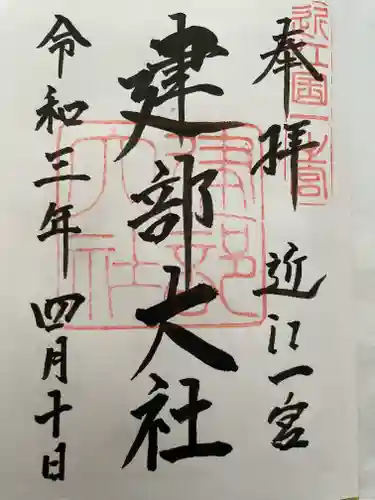 奉拝
近江一宮
近江国一之宮
建部大社
建部大社
令和三年四月十日